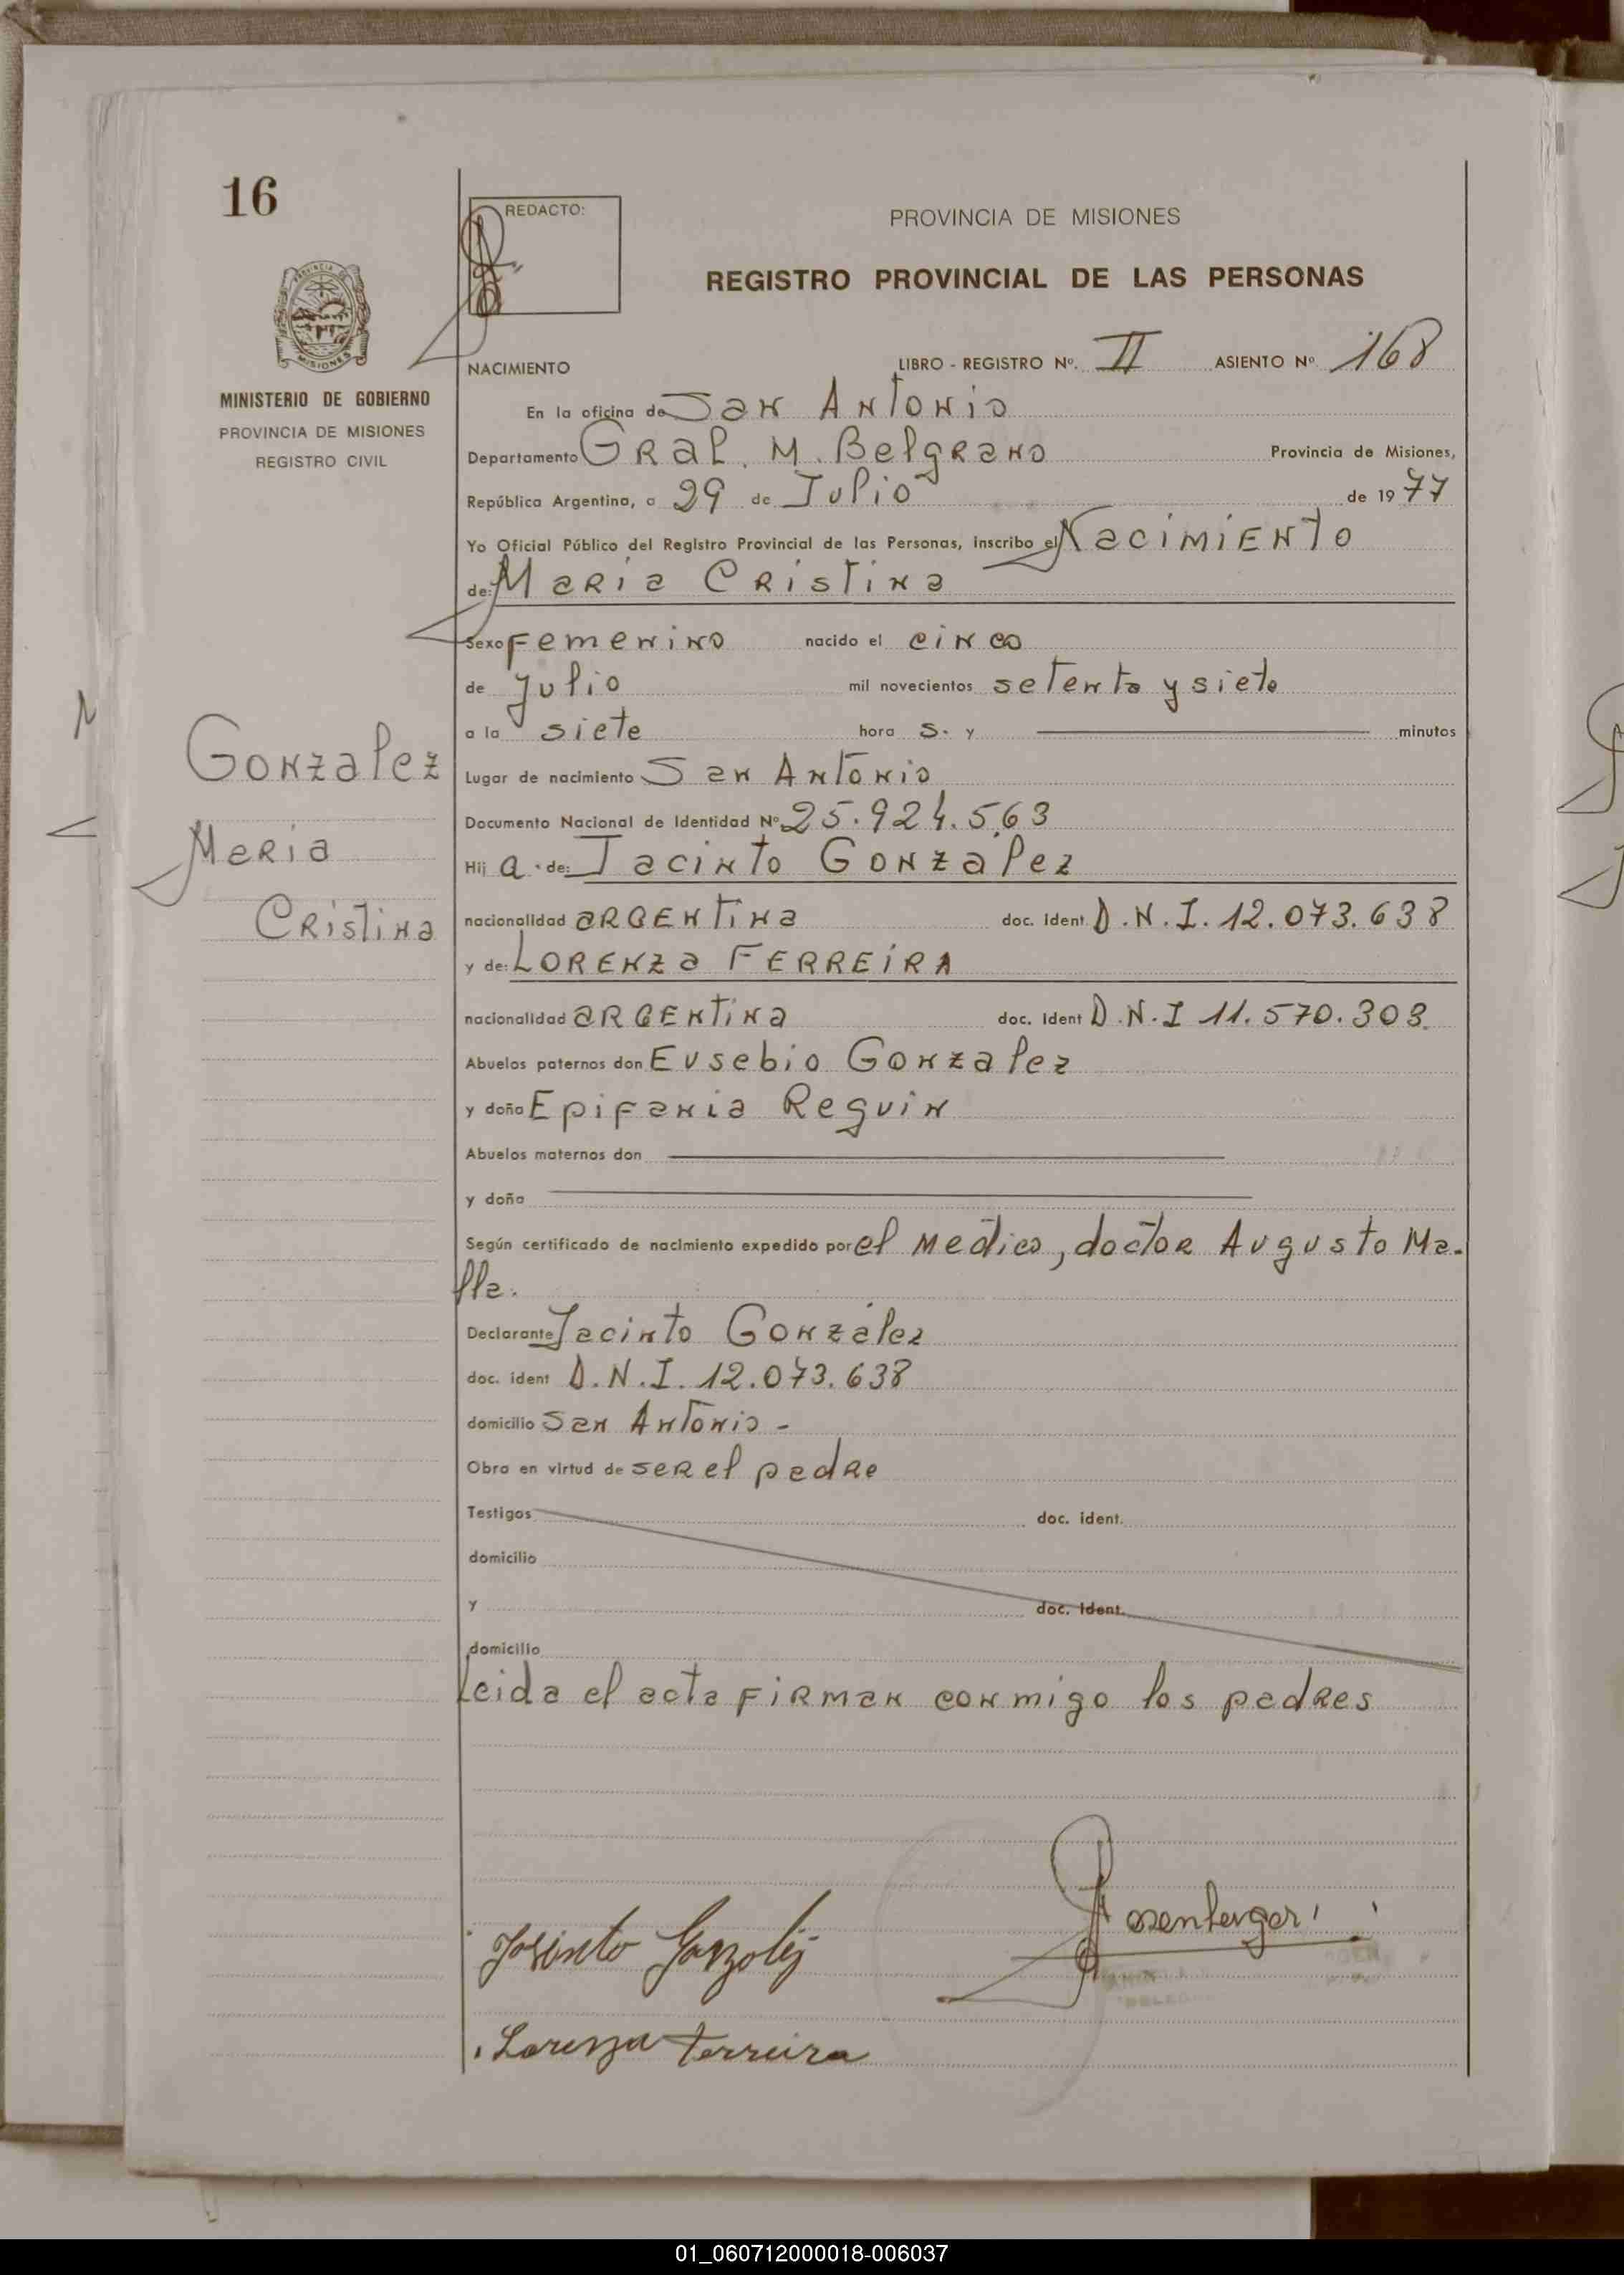 16
REDACTO:
PROVINCIA DE MISIONES
REGISTRO PROVINCIAL DE LAS PERSONAS
MINISTERIO DE GOBIERNO
PROVINCIA DE MISIONES
REGISTRO CIVIL
NACIMIENTO LIBRO - REGISTRO Nº. II ASIENTO Nº. 168
En la oficina de San Antonio
Departamento Gral. M. Belgrano Provincia de Misiones,
República Argentina, a 29 de Julio de 1977
Yo Oficial Público del Registro Provincial de las Personas, inscribo el Nacimiento
de: Maria Cristina
Sexo Femenino nacido el cinco
de Julio mil novecientos setenta y siete
a la siete hora s. y minutos
Gonzalez
Maria
Cristina
Lugar de nacimiento San Antonio
Documento Nacional de Identidad Nº 25.924.563
Hij a. de: Jacinto González
nacionalidad argentina doc. ident. D.N.I. 12.073.638
y de: Lorenza Ferreira
nacionalidad argentina doc. ident D.N.I 11.570.303.
Abuelos paternos don Eusebio Gonzalez
y doña Epifania Reguin
Abuelos maternos don
y doña
Según certificado de nacimiento expedido por el medico, doctor Augusto Ma-
lla.
Declarante Jacinto González
doc. ident D.N.I. 12.073.638
domicilio San Antonio -
Obra en virtud de ser el padre
Testigos doc. ident.
domicilio
y doc. ident.
domicilio
Leida el acta firman conmigo los padres
Josinto Gonzolez
Rosenberger
Lorenza Ferreira
01_060712000018-006037